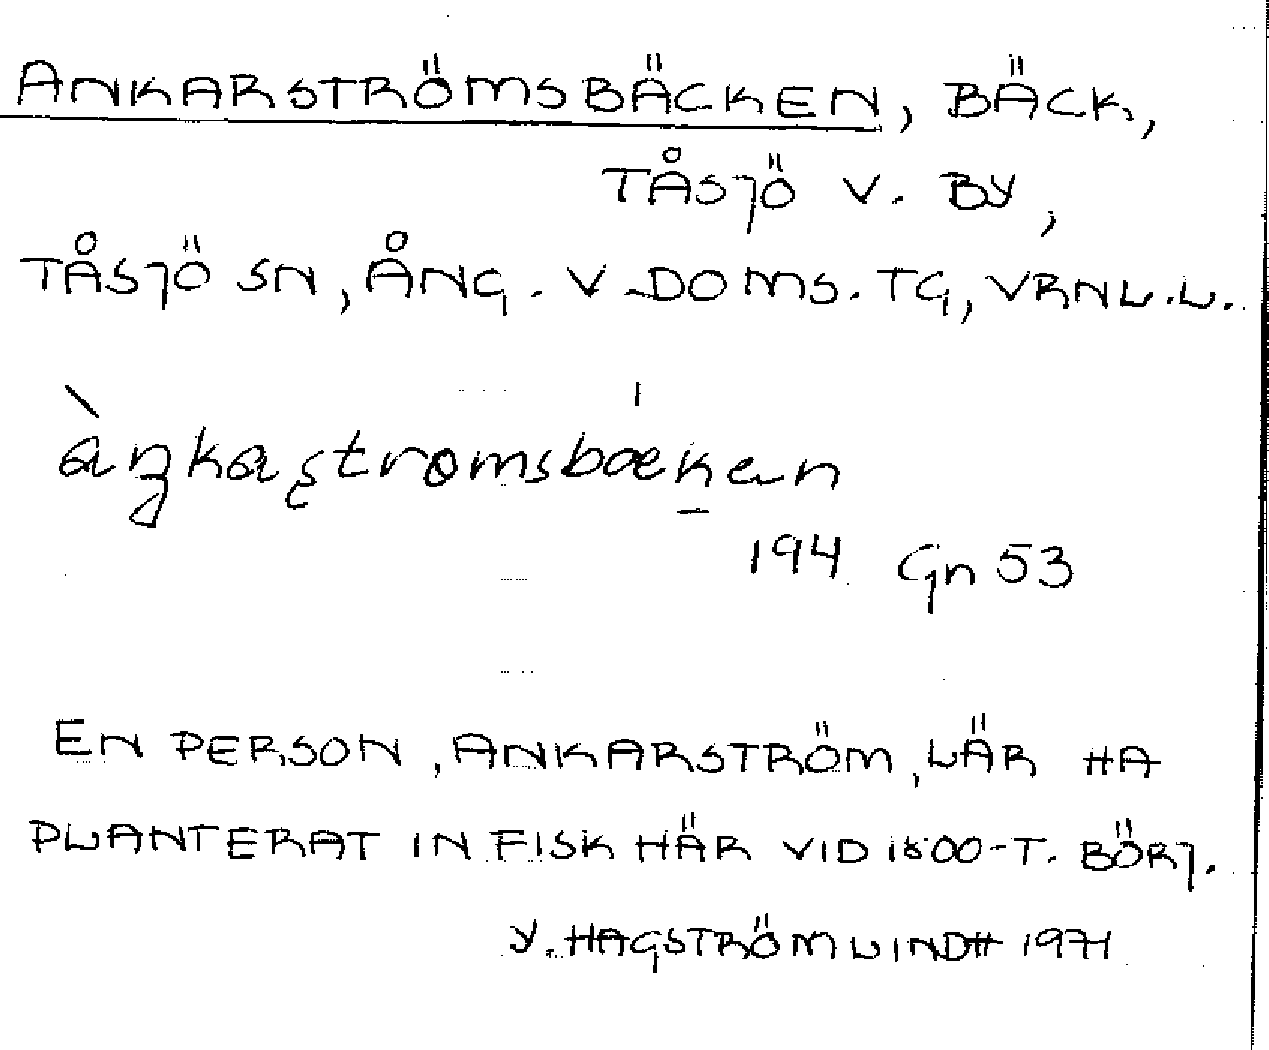 ANKARSTRÖMSBÄCKEN, BÄCK,
TÅSJÖ V. BY,
TÅSJÖ SN, ÅNG. V DOMS. TG, VRNL.L.
àŋkaʂtrømsbæken
194 Gn 53
EN PERSON, ANKARSTRÖM, LÄR HA
PLANTERAT IN FISK HÄR VID 1800-T. BÖRJ.
Y. HAGSTRÖM LINDH 1971